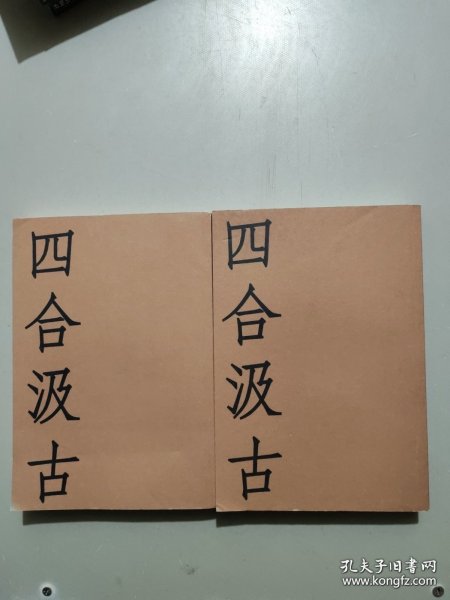 四合汲古
四合汲古
孔夫子旧书网
www.kongfz.com